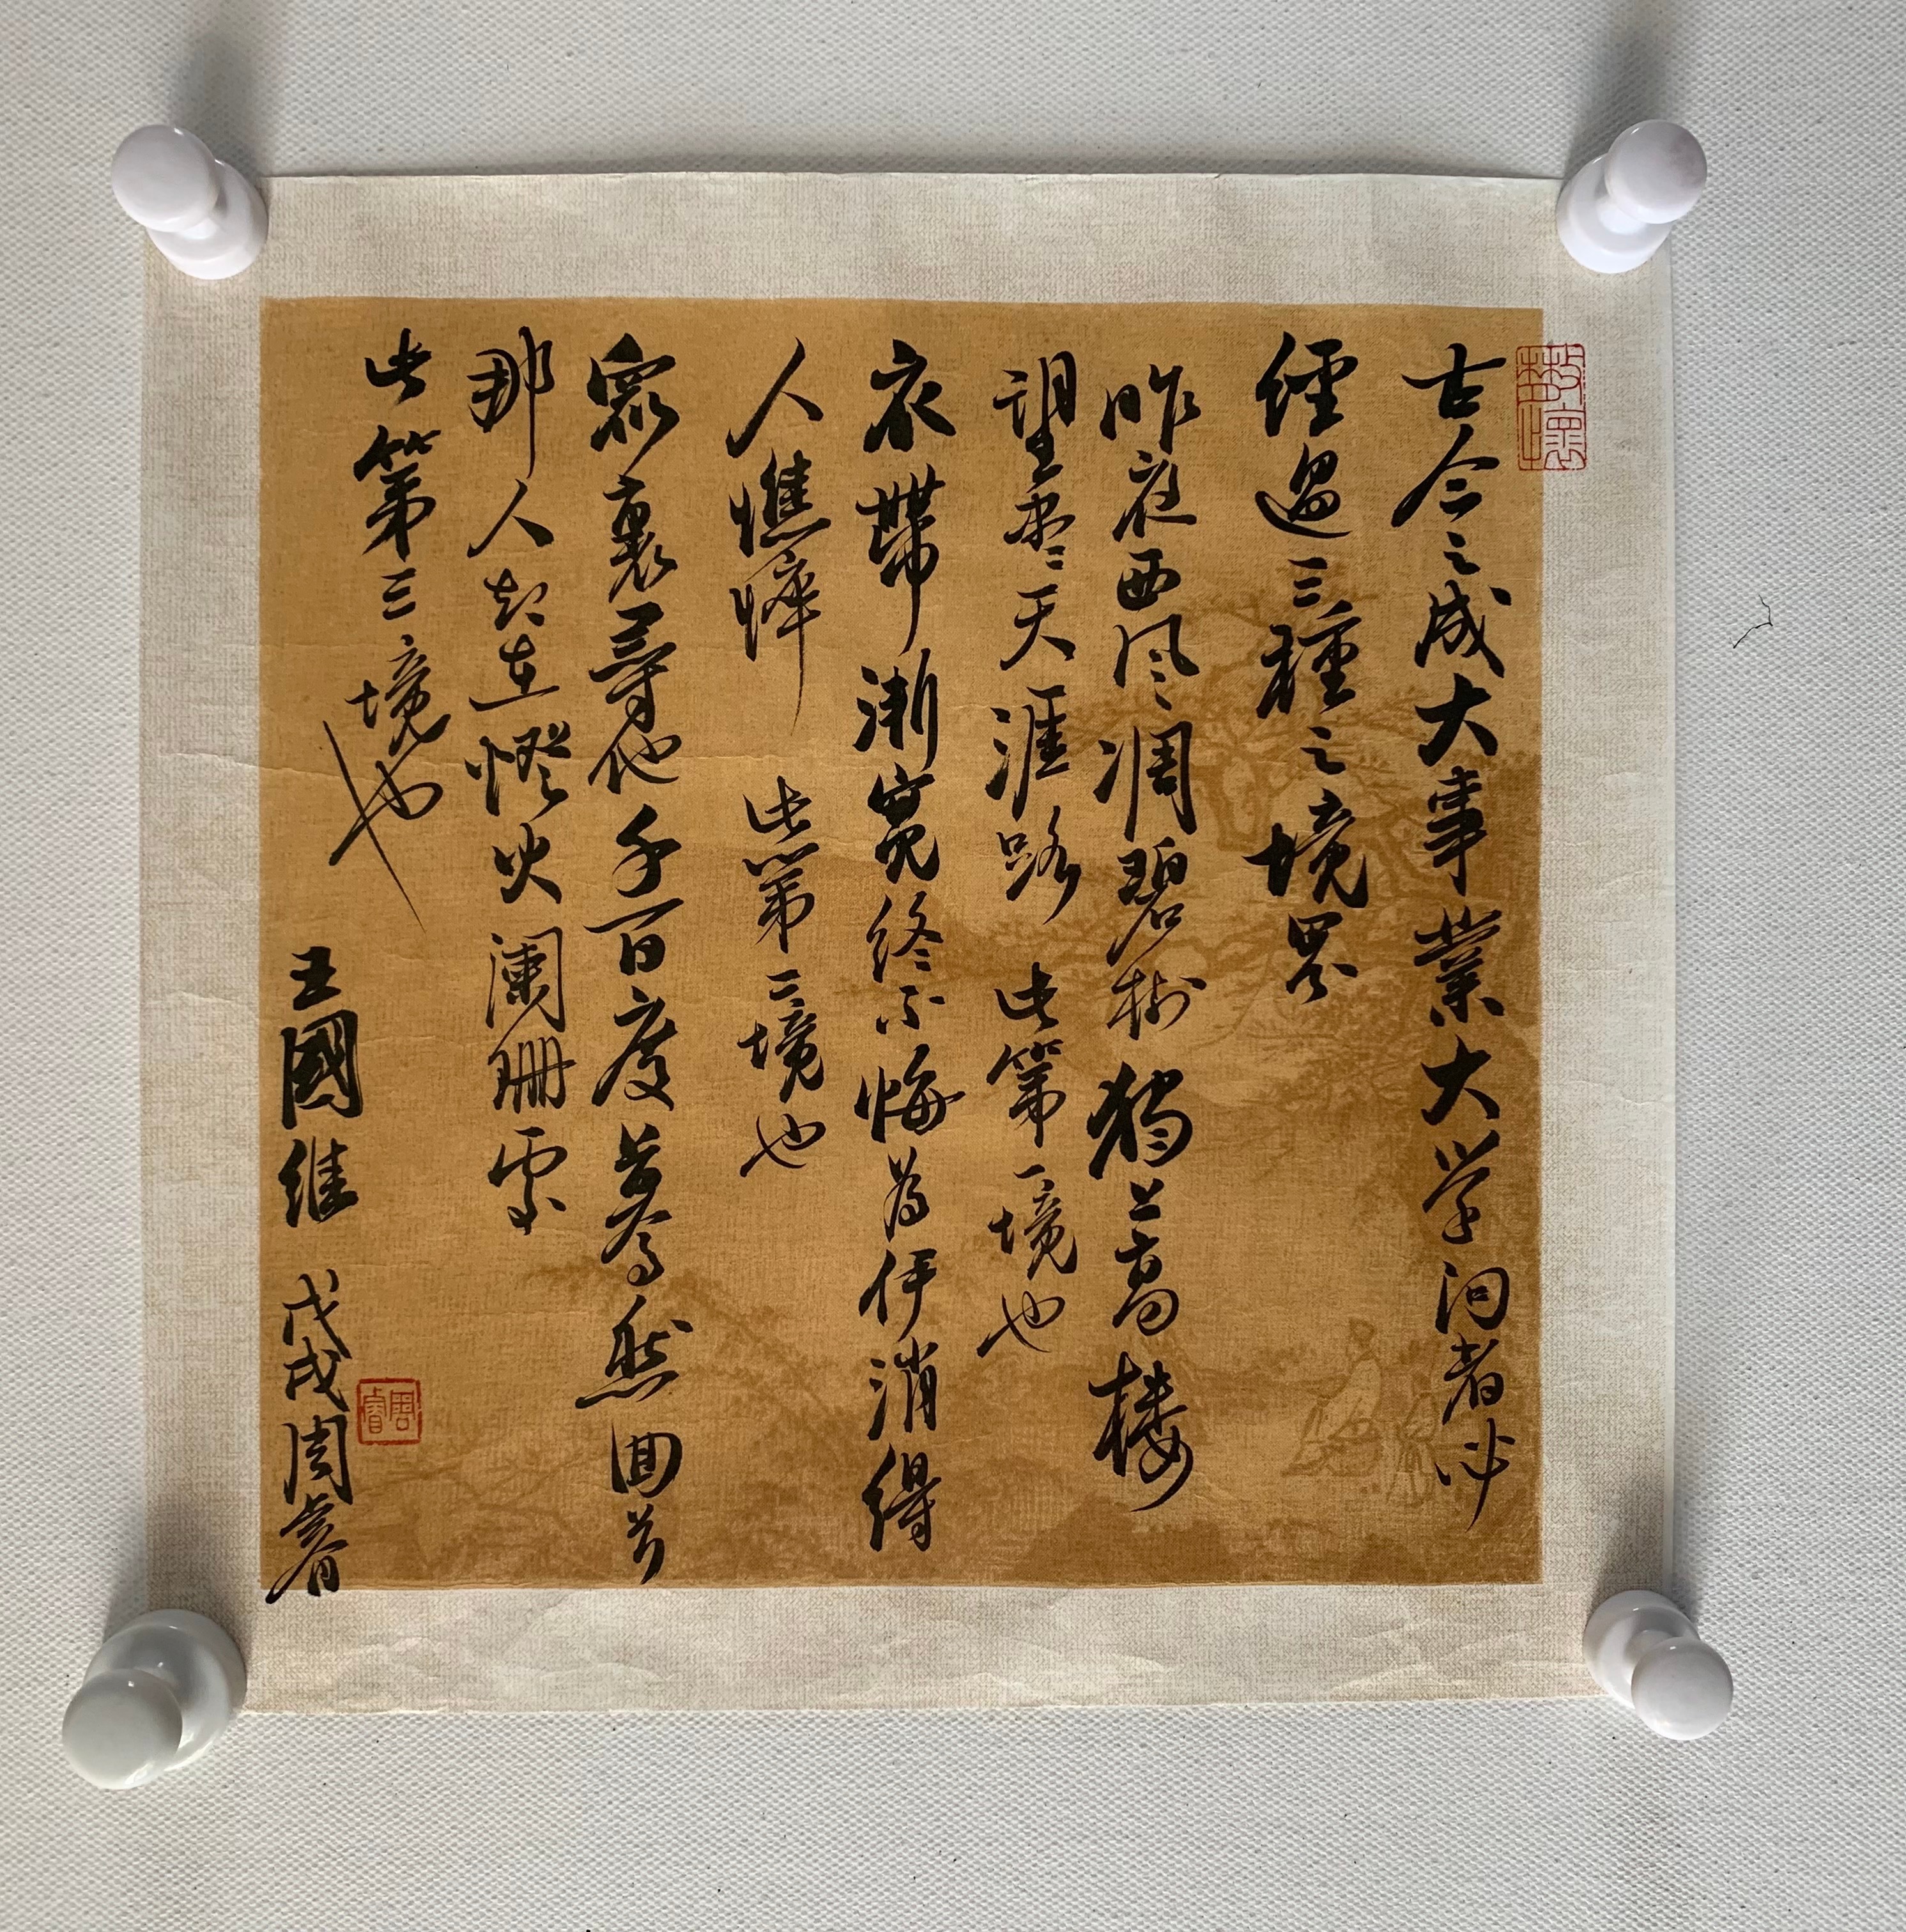 古今之成大事業大学问者必
經過三種之境界
昨夜西风凋碧树獨上高楼
望盡天涯路 此第一境也
衣帶漸寬終不悔為伊消得
人憔悴 此第二境也
衆裏尋他千百度驀然回首
那人却在燈火阑珊处
此第三境也
王國維 戊戌周睿
周睿